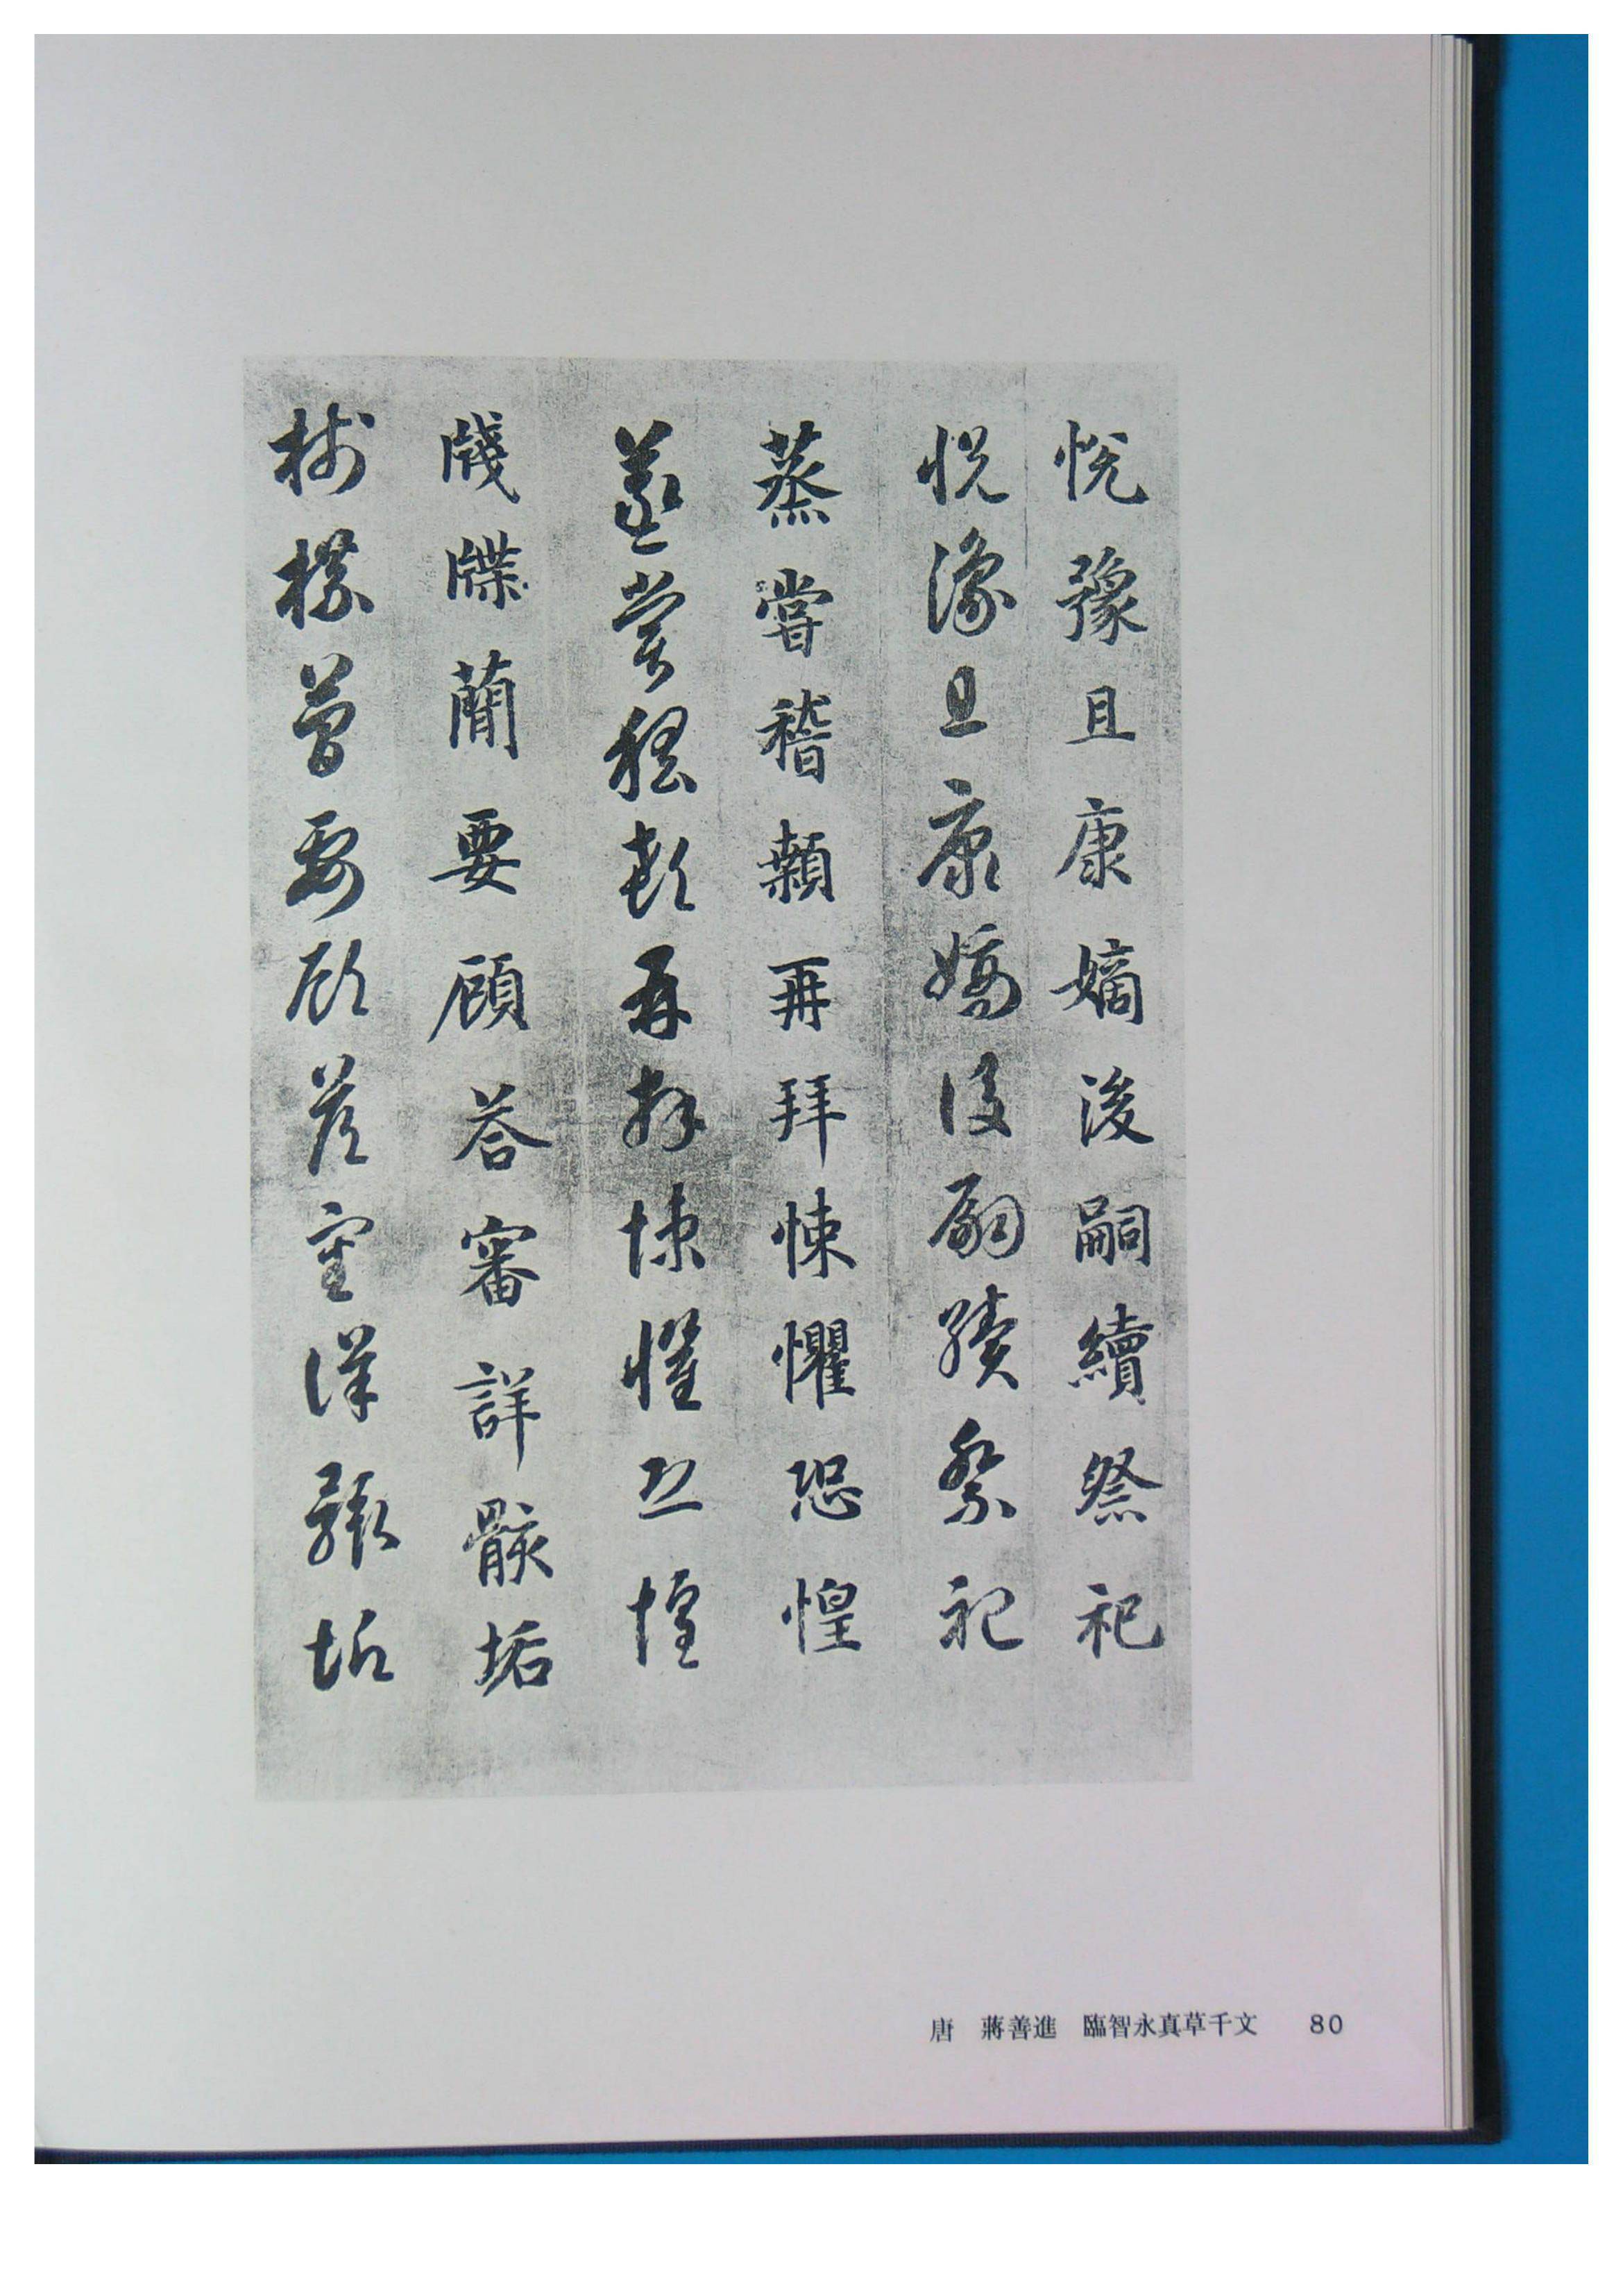 悅豫且康嫡後嗣續祭祀
悅豫且康嫡後嗣續祭祀
蒸嘗稽顙再拜悚懼恐惶
蒸嘗稽顙再拜悚懼恐惶
牋牒蕳要顧荅審詳骸垢
牋牒蕳要顧荅審詳骸垢
唐 蔣善進 臨智永真草千文 80